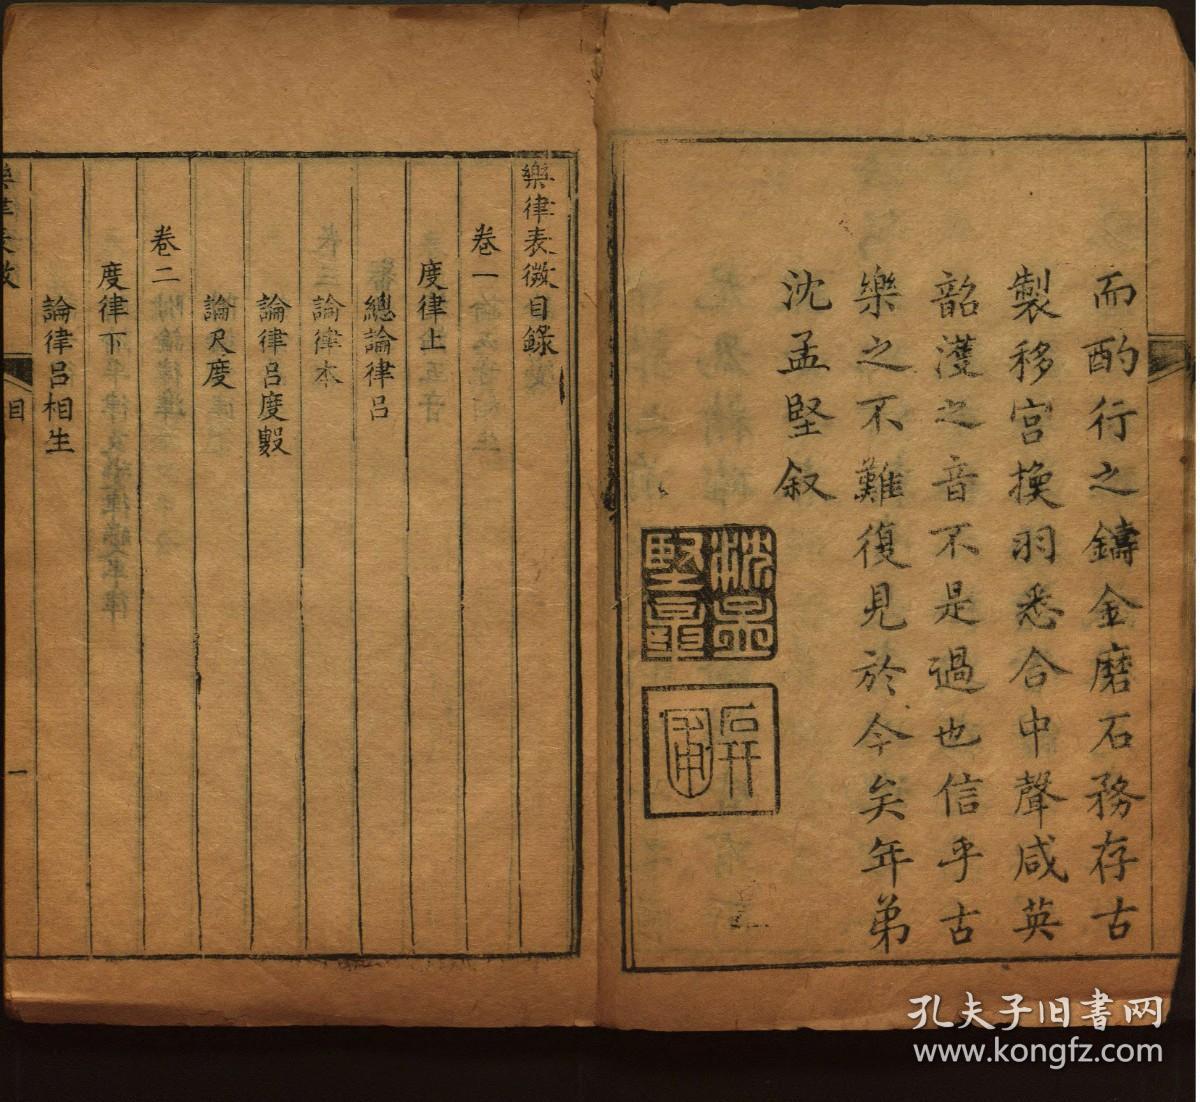 而酌行之鑄金磨石務存古
製移宮換羽悉合中聲咸英
韶濩之音不是過也信乎古
樂之不難復見於今矣年弟
沈孟堅叙
沈孟堅印
樂律表微目錄
卷一
度律上
總論律呂
論律本
論律呂度數
論尺度
卷二
度律下
論律呂相生
樂律表微
目
一
孔夫子旧书网
www.kongfz.com